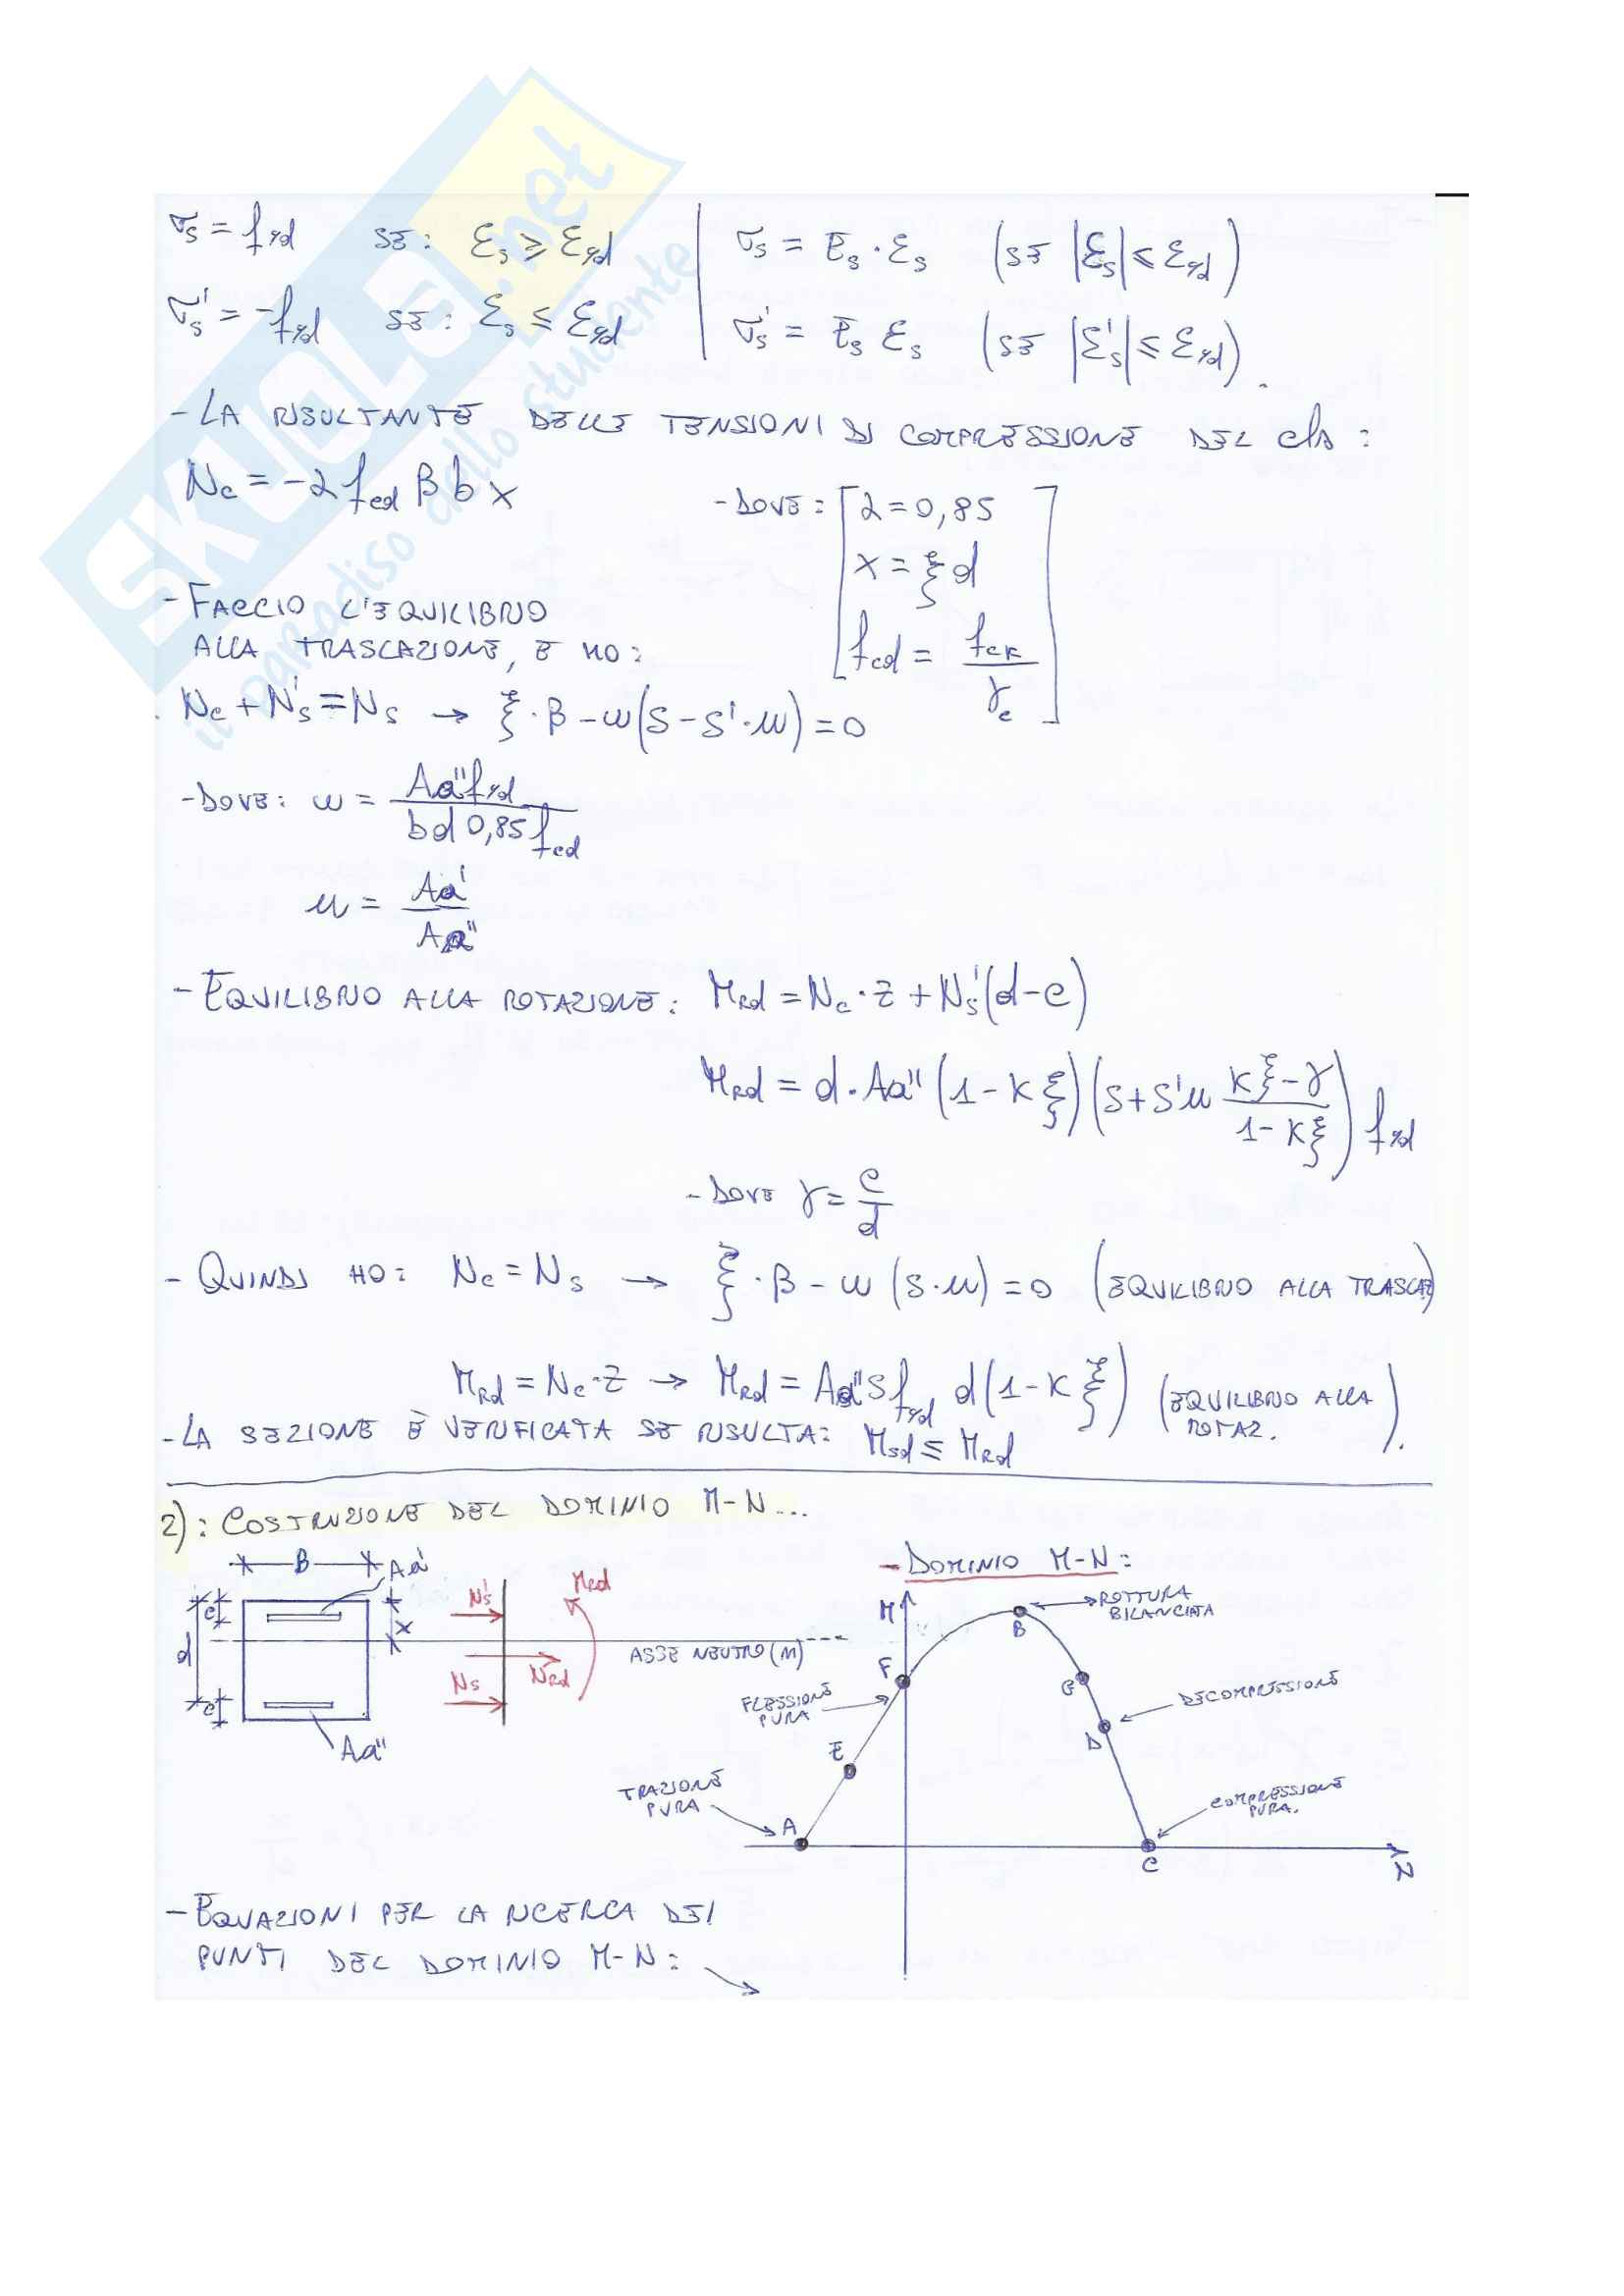 σs = fyd   SE: εs ≥ εyd   |   σs = Es · εs   (SE |εs| ≤ εyd)
σs' = -fyd   SE: εs ≤ εyd   |   σs' = Es εs   (SE |εs'| ≤ εyd).
- LA RISULTANTE DELLE TENSIONI DI COMPRESSIONE DEL cls:
Nc = -α fcd β b x   - DOVE: [α = 0,85
x = ξ d
fcd = fck / γc]
- FACCIO L'EQUILIBRIO
ALLA TRASLAZIONE, E HO:
Nc + Ns' = Ns → ξ · β - ω (S - S' · μ) = 0
- DOVE: ω = Aa'' fyd / bd 0,85 fcd
μ = Aa' / Aa''
- EQUILIBRIO ALLA ROTAZIONE: MRd = Nc · z + Ns' (d - c)
MRd = d · Aa'' (1 - K ξ) (S + S' μ (K ξ - γ) / (1 - K ξ)) fyd
- DOVE γ = c / d
- QUINDI HO: Nc = Ns → ξ · β - ω (S · μ) = 0 (EQUILIBRIO ALLA TRASLAZ)
MRd = Nc · z → MRd = Aa'' S fyd d (1 - K ξ) (EQUILIBRIO ALLA ROTAZ.).
- LA SEZIONE È VERIFICATA SE RISULTA: Msd ≤ MRd
2): COSTRUZIONE DEL DOMINIO M-N...
B
Aa'
c
d
x
c
Aa''
Ns'
MRd
NRd
Ns
ASSE NEUTRO (M)
- DOMINIO M-N:
M
B
ROTTURA
BILANCIATA
F
FLESSIONE
PURA
G
DECOMPRESSIONE
D
E
TRAZIONE
PURA
A
COMPRESSIONE
PURA.
C
N
- EQUAZIONI PER LA RICERCA DEI
PUNTI DEL DOMINIO M-N:
SKUOLA.net
il paradiso dello studente